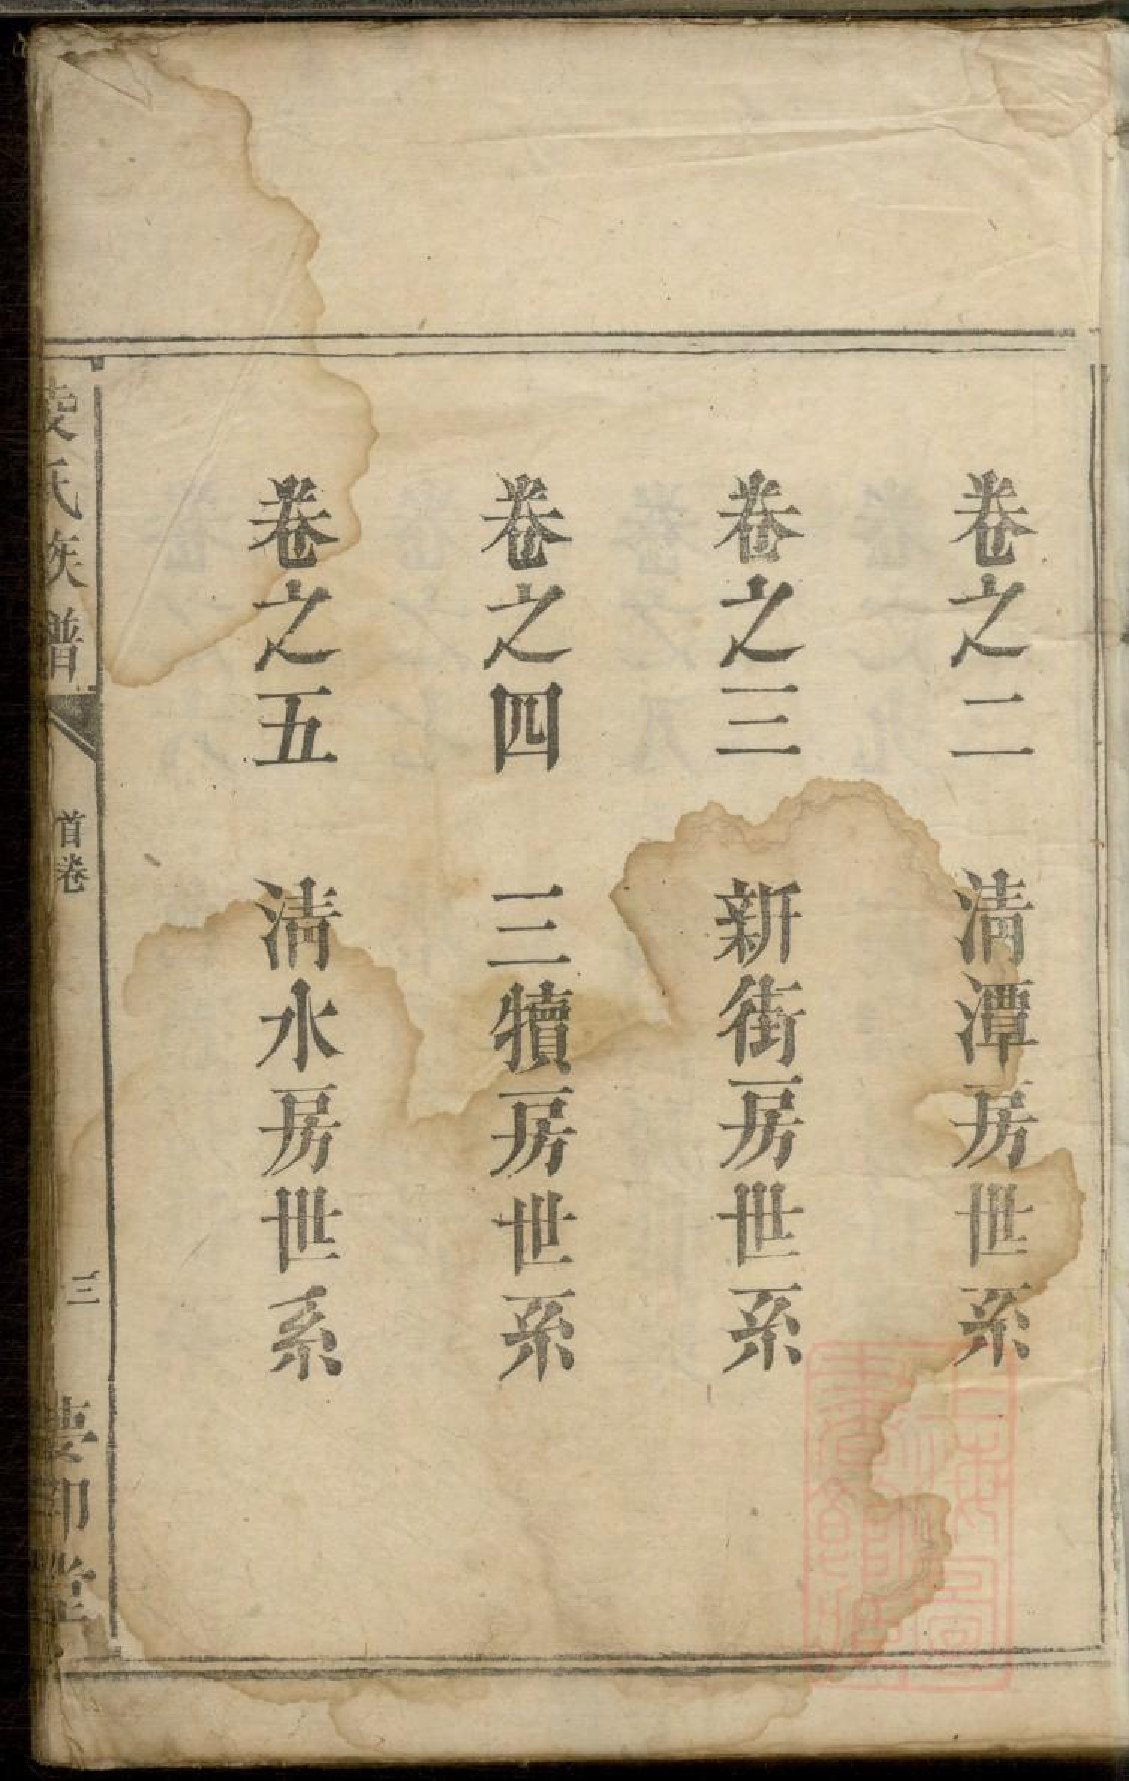 卷之二　清潭房世系
卷之三　新街房世系
卷之四　三犢房世系
卷之五　清水房世系
氏族譜
首卷
三
印堂